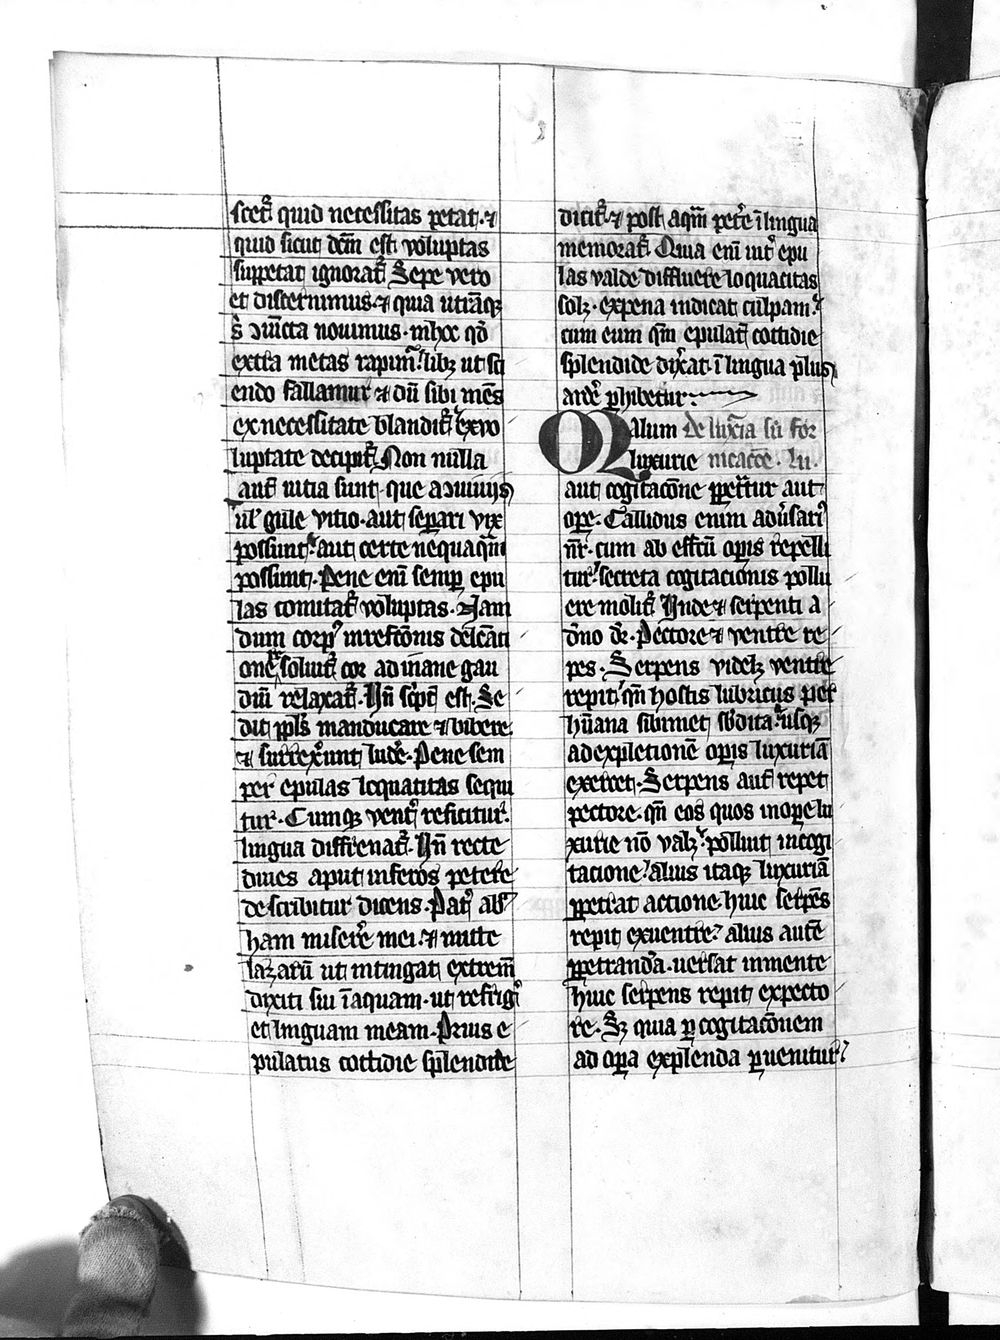 scet᷑ quid necessitas petat· ⁊
quid sicut dc̄m est voluptas
suppetat ignorat᷑ Sepe vero
et discernimus· ⁊ quia utrāqꝫ
ꝯiūcta nouimus· in hoc qd̄
extra metas rapim᷑ libꝫ ut sci
endo fallamur ⁊ dū sibi mēs
ex necessitate blandit᷑ ex vo
luptate decipit᷑ Non nulla
aut᷑ uitia sunt· que a ꝯiuiijs
ul᷑ gule vitio· aut separi vix
possunt· aut certe nequaqm̄
possunt· Pene enī semꝑ epu
las comitat᷑ voluptas· Nam
dum corpꝰ in refctōnis delcāti
one soluit᷑ cor ad inane gau
diū relaxat᷑· Un̄ sc̓pt̄ est· Se
dit ppl̄s manducare ⁊ bibere
⁊ surrexerunt ludē· Pene sem
per epulas loquatitas sequi
tur· Cumqꝫ ventꝰ reficitur·
lingua diffrenat᷑· Un̄ recte
diues aput inferos petere
describitur dicens· Patꝰ ab̄
ham miserē mei· ⁊ mitte
lazarū ut intingat extremū
digiti sui ī aquam· ut refrigꝰ
et linguam meam· Prius e
pulatus cottidie splendide
dicit᷑· ⁊ post aqm̄ petē ī lingua
memorat᷑· Quia enī int̓ epu
las valde diffluere loquacitas
solꝫ· ex pena indicat culpam·
cum eum qm̄ epulat᷑ cottidie
splendide dix̓at· ī lingua plus
ardē phibetur·
Malum de lux̓ia sū for
luxurie nicac̄ōe· Lu·
aut cogitacōne ꝑpetratur aut
oꝑe· Callidus enim adūsariꝰ
nr̄· cum ab effctū oꝑis repelli
tur· secreta cogitacionis pollu
ere molit᷑ Unde ⁊ serpenti a
dn̄o dr̄· Pectore ⁊ ventre re
pes· Serpens videlꝫ ventre
repit· qn̄ hostis lubricus per
hūana sibimet sbdita· usqꝫ
ad expletionē oꝑis luxuriā
exercet· Serpens aut᷑ repet
pectore· qn̄ eos quos in oꝑe lu
xurie nō valꝫ· polluit in cogi
tacione· alius itaqꝫ luxuriā
ꝑpetrat actione huic serpēs
repit ex uentre· alius autē
ꝑpetranda· uersat in mente
huic serpens repit ex pecto
re· Sꝫ quia ꝑ cogitacōnem
ad oꝑa explenda ꝑuenitur